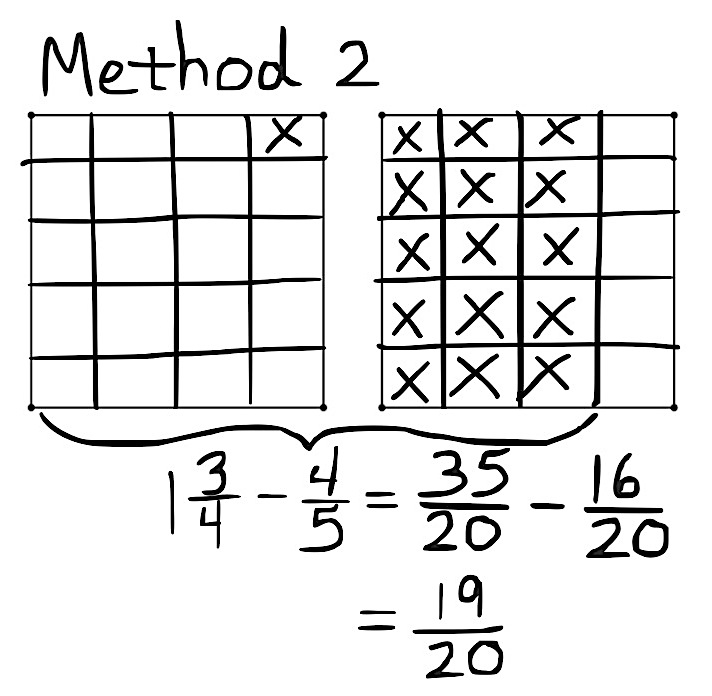 Method 2
x
x x x
x x x
x x x
x x x
x x x
1 3/4 - 4/5 = 35/20 - 16/20
= 19/20